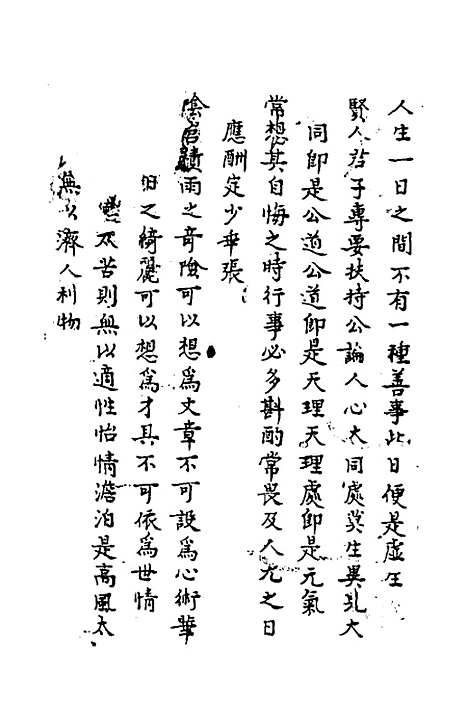 人生一日之間不有一種善事此日便是虛生
賢人君子專要扶持公論人心大同處莫生異乳大
同即是公道公道即是天理天理處即是元氣
常想其自悔之時行事必多斟酌常畏及人尤之日
應酬定少乖張
陰宮蹟雨之奇險可以想為文章不可設為心術華
之綺麗可以想為才具不可依為世情
苦則無以適性怡情澹泊是高風太
無以濟人利物